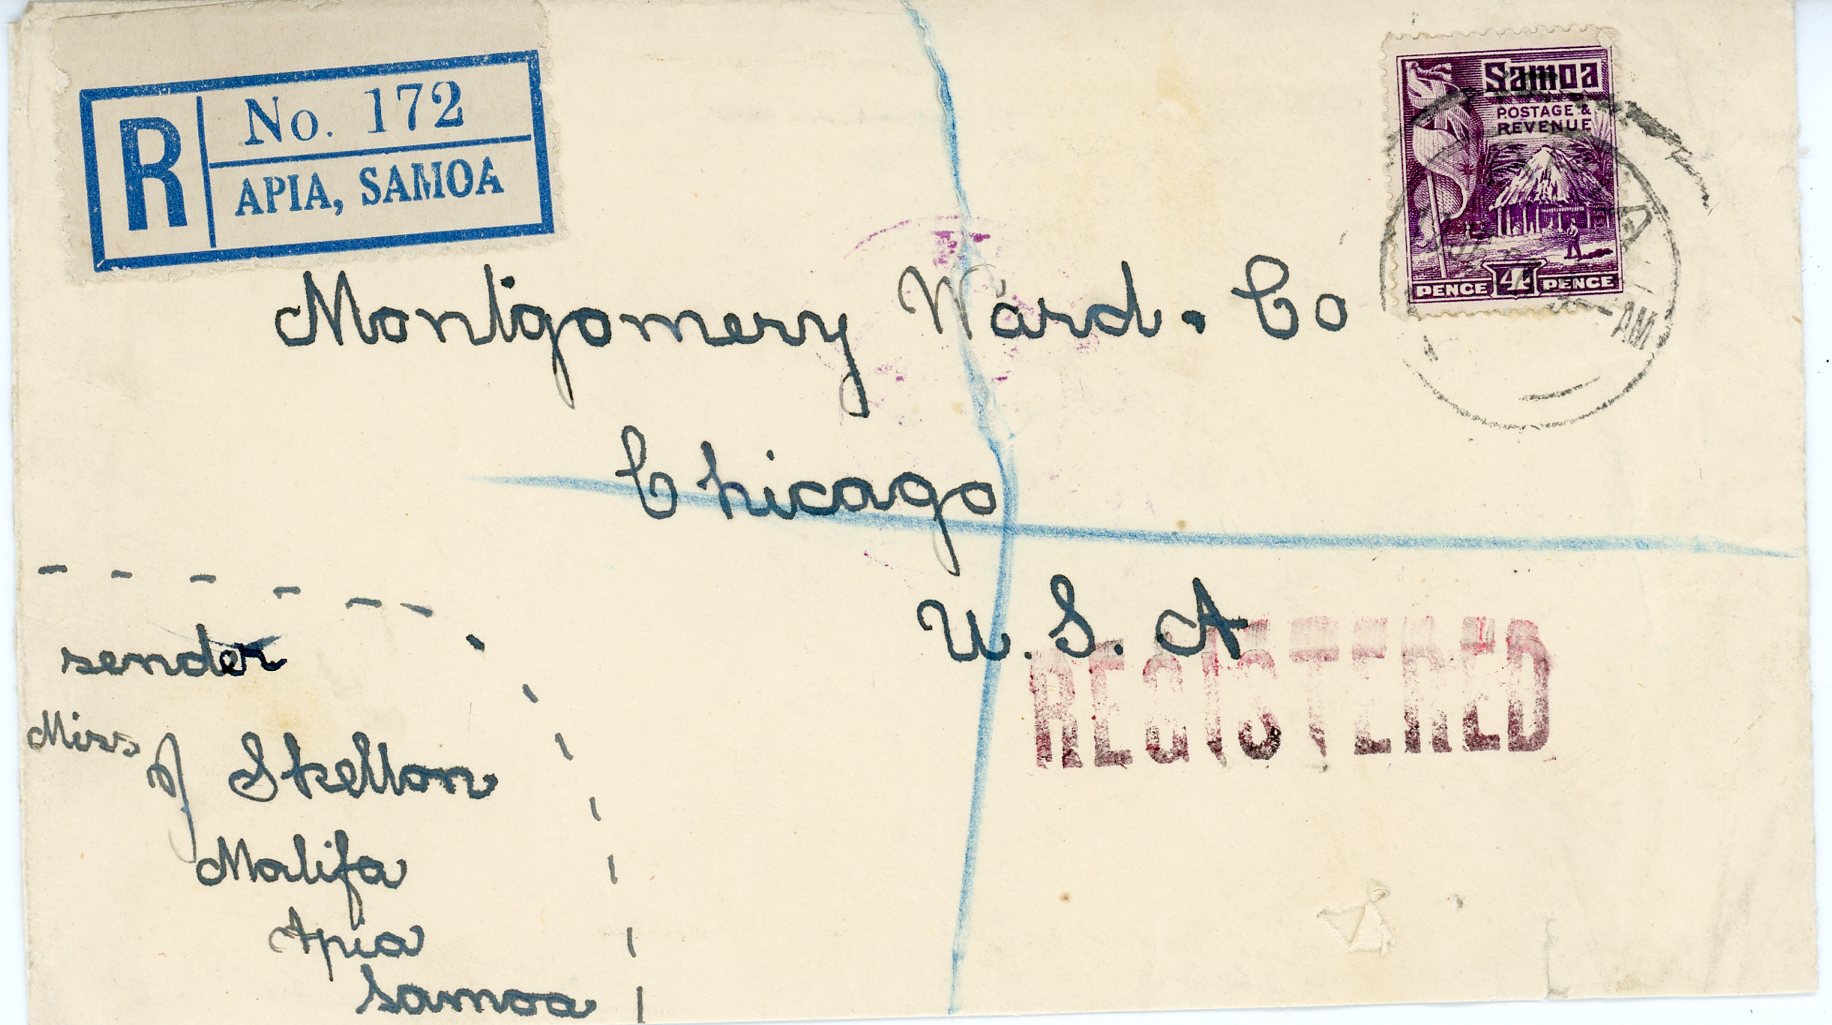 R
No. 172
APIA, SAMOA
Samoa
POSTAGE &
REVENUE
PENCE 4 PENCE
AM
Montgomery Ward. Co
Chicago
U.S.A
REGISTERED
sender
Miss J Skelton
Malifa
Apia
Samoa